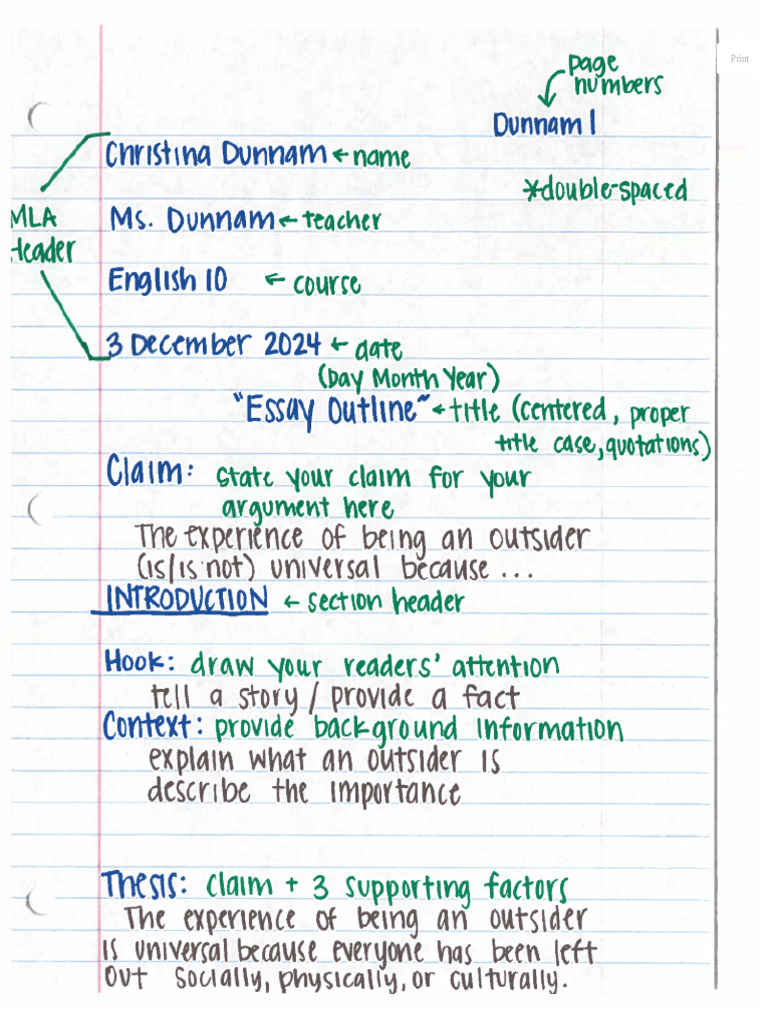 Print
page
numbers
Dunnam 1
Christina Dunnam ← name
*double-spaced
MLA
Header
Ms. Dunnam ← teacher
English 10 ← course
3 December 2024 ← date
(Day Month Year)
"Essay Outline" ← title (centered, proper
title case, quotations)
Claim: state your claim for your
argument here
The experience of being an outsider
(is/is not) universal because ...
INTRODUCTION ← section header
Hook: draw your readers' attention
tell a story / provide a fact
Context: provide background information
explain what an outsider is
describe the importance
Thesis: claim + 3 supporting factors
The experience of being an outsider
is universal because everyone has been left
out socially, physically, or culturally.